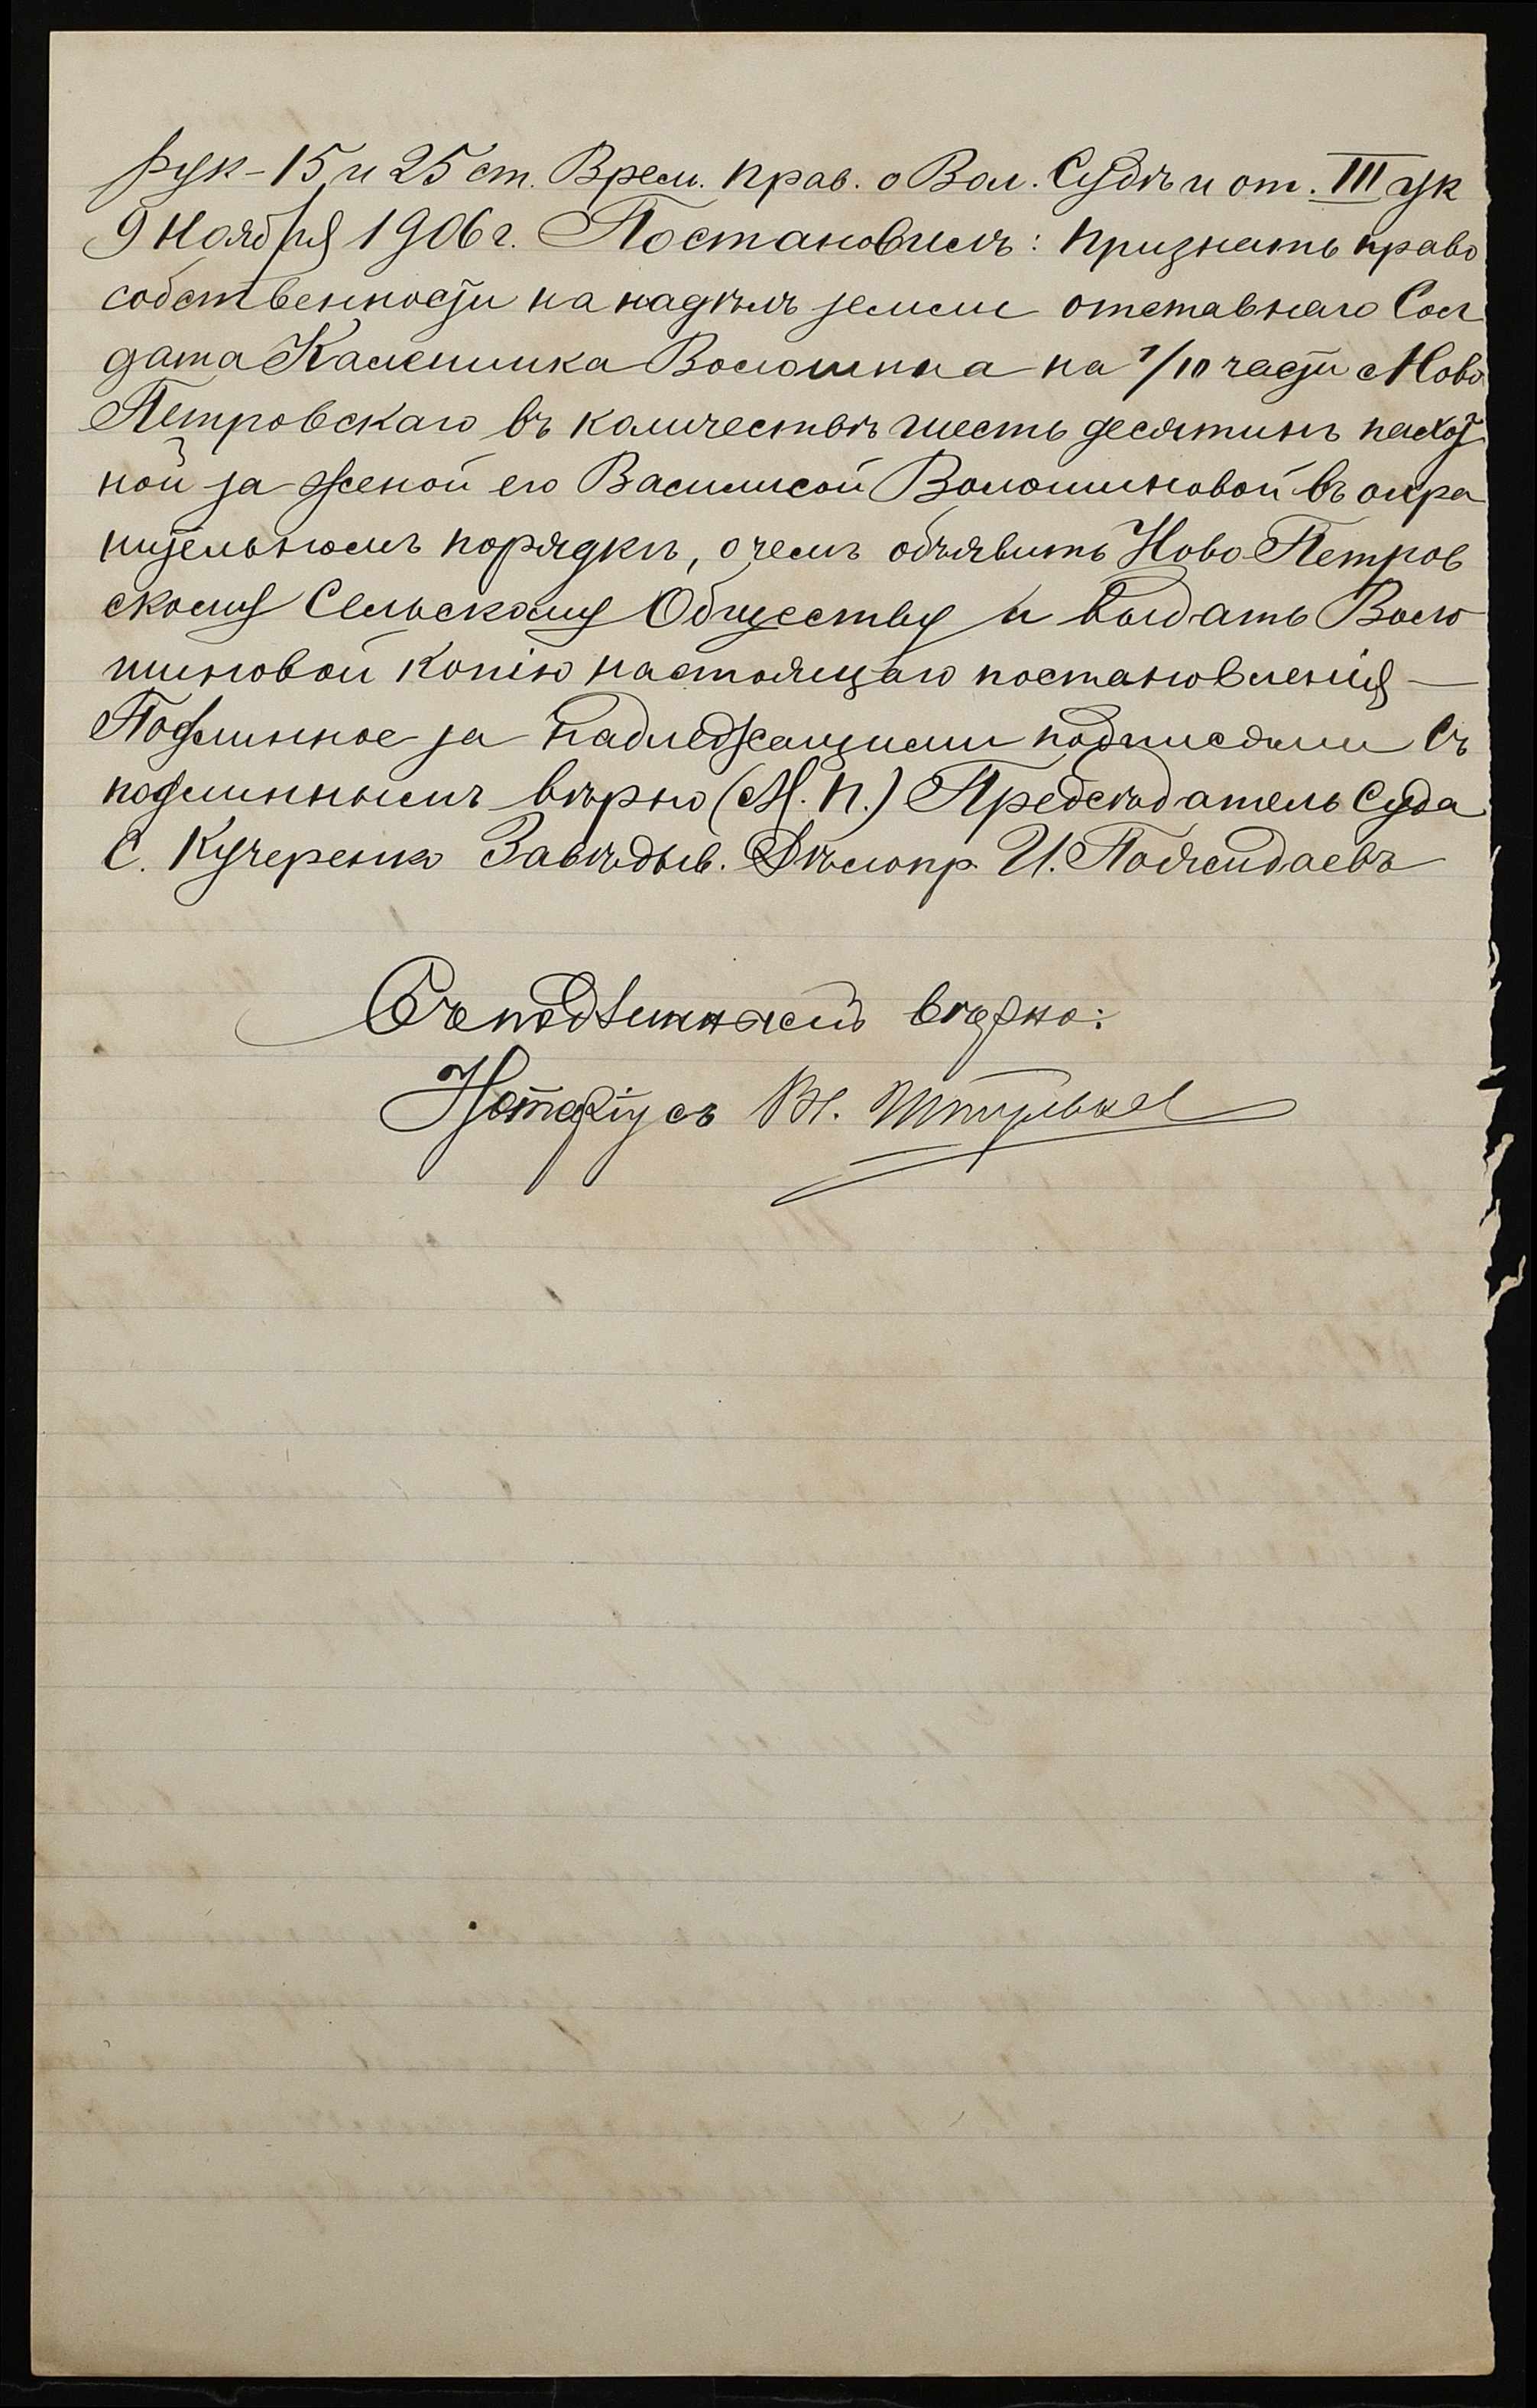 рук-15 и 25 ст. Врем. прав. о Вол. Судѣ и от. III ук
9 Ноября 1906 г. Постановилъ: признать право
собственности на надѣлъ земли отставнаго Сол
дата Каленика Волошина на 1/10 части с Ново
Петровскаго въ количествѣ шесть десятинъ пахот
ной за женой его Василисой Волошиновой въ охра
нительномъ порядкѣ, о чемъ объявить Ново-Петров
скому Сельскому Обществу и выдать Воло
шиновой копію настоящаго постановленія —
Подлинное за надлежащими подписями Съ
подлиннымъ вѣрно (М. П.) Предсѣдатель Суда
С. Кучеренко Завѣдыв. Дѣлопр. И. Пожидаевъ
Съ подлиннымъ вѣрно:
Нотаріусъ